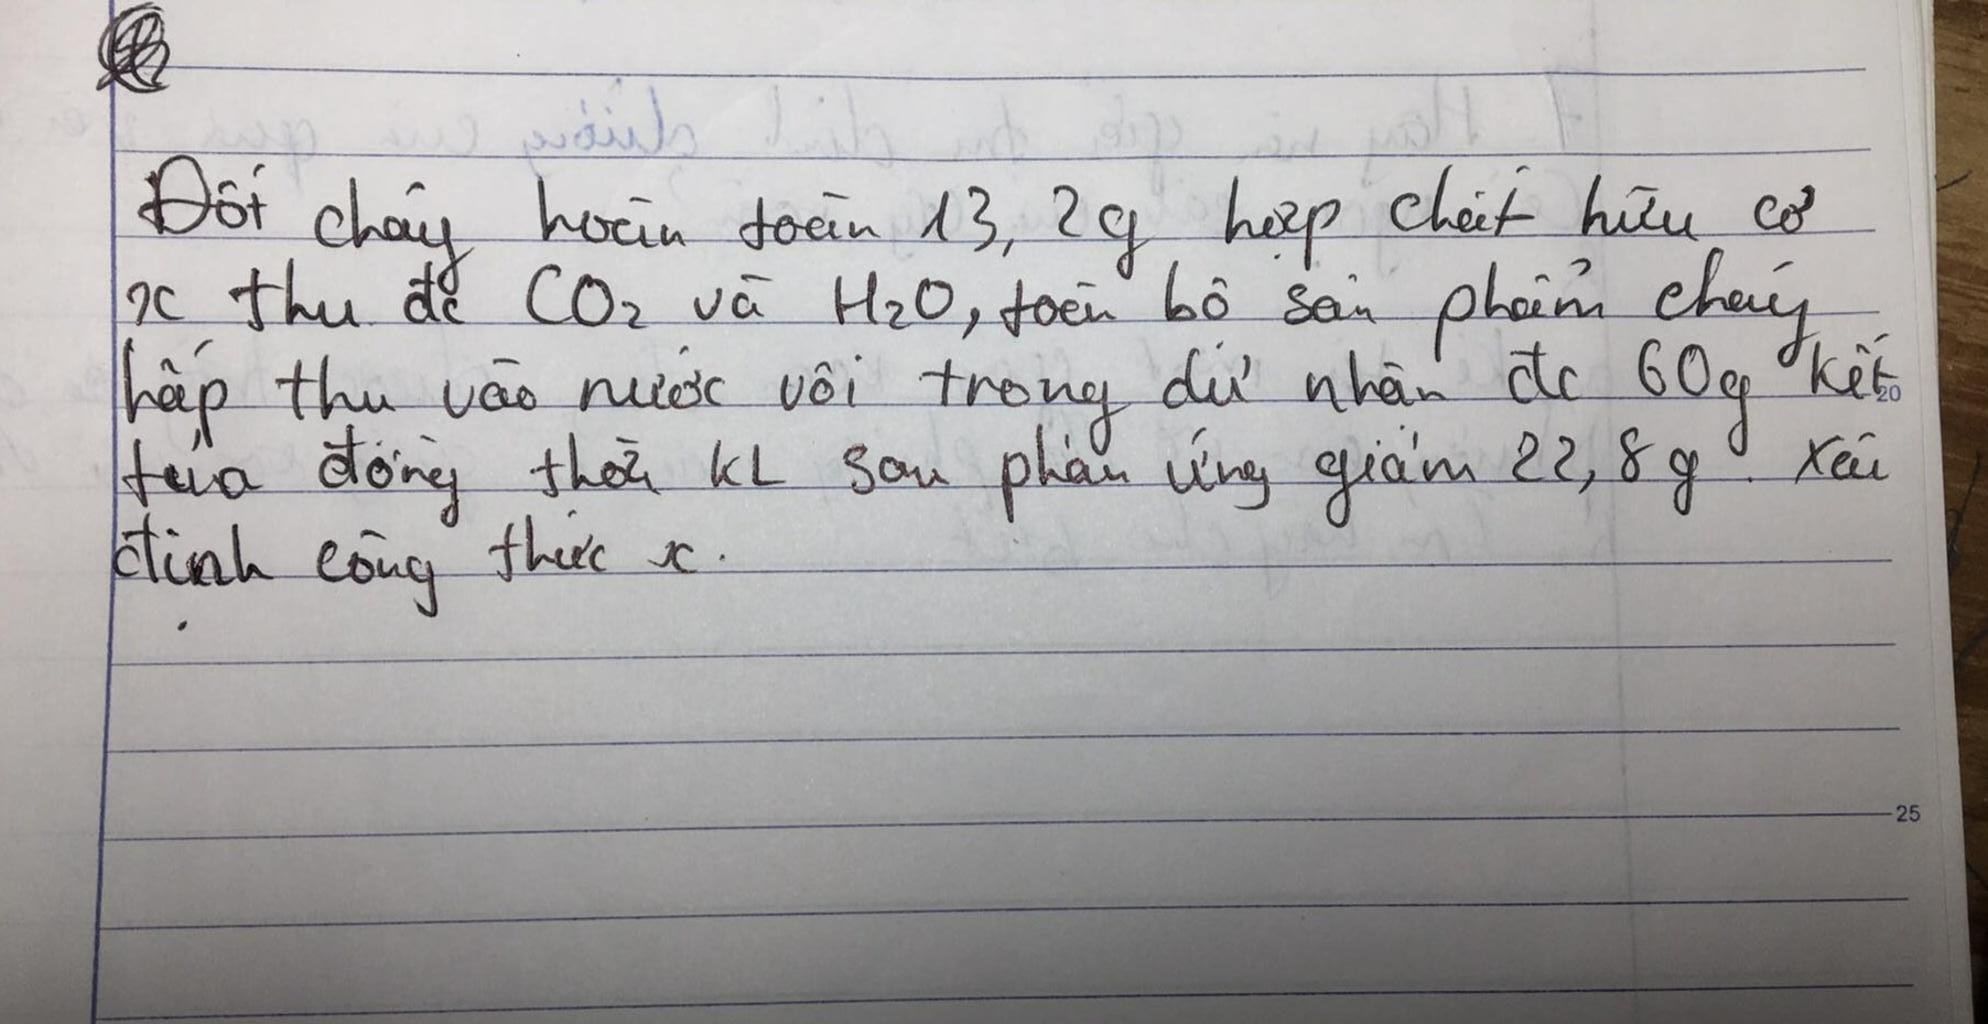 Đốt cháy hoàn toàn 13,2g hợp chất hữu cơ
x thu đc CO2 và H2O, toàn bộ sản phẩm cháy
hấp thu vào nước vôi trong dư nhận đc 60g kết
20
tủa đồng thời KL sau phản ứng giảm 22,8g. Xác
định công thức x.
25